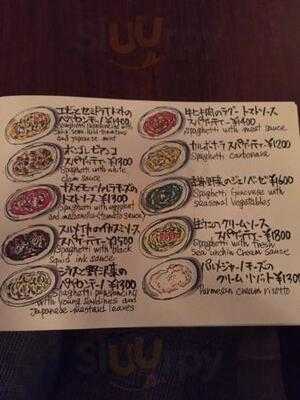 スパゲティー ¥1400
Spaghetti peperoncino with
and Japanese mint
ボンゴレビアンコ
スパゲティー ¥1300
Spaghetti with white
clam sauce
トマトソース ¥1300
Spaghetti with eggplant
and mozzarella (tomato sauce)
スルメイカのイカスミソース
スパゲティー ¥1500
Spaghetti with black
squid ink sauce
ペペロンチーノ ¥1300
Spaghetti peperoncino
with young sardines and
Japanese mustard leaves
牛と牛肉のラグー トマトソース
スパゲティー ¥1400
Spaghetti with meat sauce
カルボナーラ スパゲティー ¥1200
Spaghetti carbonara
季節野菜のジェノベーゼ ¥1600
Spaghetti Genovese with
seasonal vegetables
生ウニのクリームソース
スパゲティー
Spaghetti with fresh
Sea urchin cream sauce
パルメジャーノチーズの
クリームリゾット ¥1300
Parmesan cream risotto